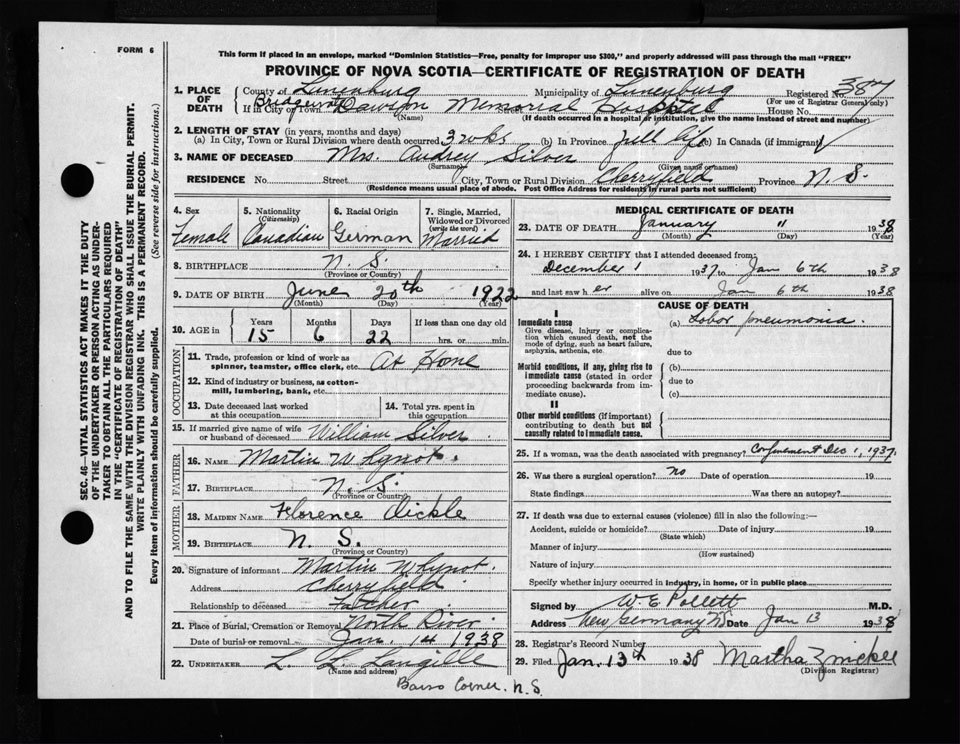 FORM 6
This form if placed in an envelope, marked "Dominion Statistics—Free, penalty for improper use $300," and properly addressed will pass through the mail "FREE"
PROVINCE OF NOVA SCOTIA—CERTIFICATE OF REGISTRATION OF DEATH
1. PLACE OF DEATH
County of Lunenburg Municipality of Lunenburg Registered No. 387
(For use of Registrar General only)
If in City or Town Bridgewater Dawson Memorial Hospital Street House No.
(Name) (If death occurred in a hospital or institution, give the name instead of street and number)
2. LENGTH OF STAY (in years, months and days)
(a) In City, Town or Rural Division where death occurred 3 wks (b) In Province full life (c) In Canada (if immigrant)
3. NAME OF DECEASED Mrs. Audrey Silver
(Surname) (Given name or names)
RESIDENCE No. Street City, Town or Rural Division Cherryfield Province N. S.
(Residence means usual place of abode. Post Office Address for residents in rural parts not sufficient)
4. Sex
Female
5. Nationality
(Citizenship)
Canadian
6. Racial Origin
German
7. Single, Married, Widowed or Divorced
(write the word)
Married
8. BIRTHPLACE N. S.
(Province or Country)
9. DATE OF BIRTH June 20th 1922
(Month) (Day) (Year)
10. AGE in
Years Months Days If less than one day old
15 6 22 hrs. or min.
OCCUPATION
11. Trade, profession or kind of work as spinner, teamster, office clerk, etc. At Home
12. Kind of industry or business, as cotton-mill, lumbering, bank, etc.
13. Date deceased last worked at this occupation
14. Total yrs. spent in this occupation
15. If married give name of wife or husband of deceased William Silver
FATHER
16. NAME Martin Whynot
17. BIRTHPLACE N. S.
(Province or Country)
MOTHER
18. MAIDEN NAME Florence Dickle
19. BIRTHPLACE N. S.
(Province or Country)
20. Signature of informant Martin Whynot.
Address Cherryfield
Relationship to deceased Father
21. Place of Burial, Cremation or Removal North River
Date of burial or removal Jan. 14 1938
22. UNDERTAKER L. L. Langille
(Name and address)
Barss Corner. N. S.
MEDICAL CERTIFICATE OF DEATH
23. DATE OF DEATH January 11 1938
(Month) (Day) (Year)
24. I HEREBY CERTIFY that I attended deceased from:
December 1 1937 to Jan 6th 1938
and last saw her alive on Jan 6th 1938
CAUSE OF DEATH
I
Immediate cause
Give disease, injury or complication which caused death, not the mode of dying, such as heart failure, asphyxia, asthenia, etc.
(a) Lobar pneumonia.
due to
Morbid conditions, if any, giving rise to immediate cause (stated in order proceeding backwards from immediate cause).
(b)
due to
(c)
II
Other morbid conditions (if important) contributing to death but not causally related to immediate cause.
25. If a woman, was the death associated with pregnancy? Confinement Dec 1, 1937.
26. Was there a surgical operation? no Date of operation 19
State findings Was there an autopsy?
27. If death was due to external causes (violence) fill in also the following:—
Accident, suicide or homicide? Date of injury 19
(State which)
Manner of injury
(How sustained)
Nature of injury
Specify whether injury occurred in industry, in home, or in public place
Signed by W. E. Pollett M.D.
Address New Germany NS Date Jan 13 1938
28. Registrar's Record Number
29. Filed Jan. 13th 1938 Martha Zwicker
(Division Registrar)
SEC. 46—VITAL STATISTICS ACT MAKES IT THE DUTY
OF THE UNDERTAKER OR PERSON ACTING AS UNDERTAKER
TO OBTAIN ALL THE PARTICULARS REQUIRED
IN THE "CERTIFICATE OF REGISTRATION OF DEATH"
AND TO FILE THE SAME WITH THE DIVISION REGISTRAR WHO SHALL ISSUE THE BURIAL PERMIT.
WRITE PLAINLY WITH UNFADING INK. THIS IS A PERMANENT RECORD.
Every item of information should be carefully supplied. (See reverse side for instructions.)